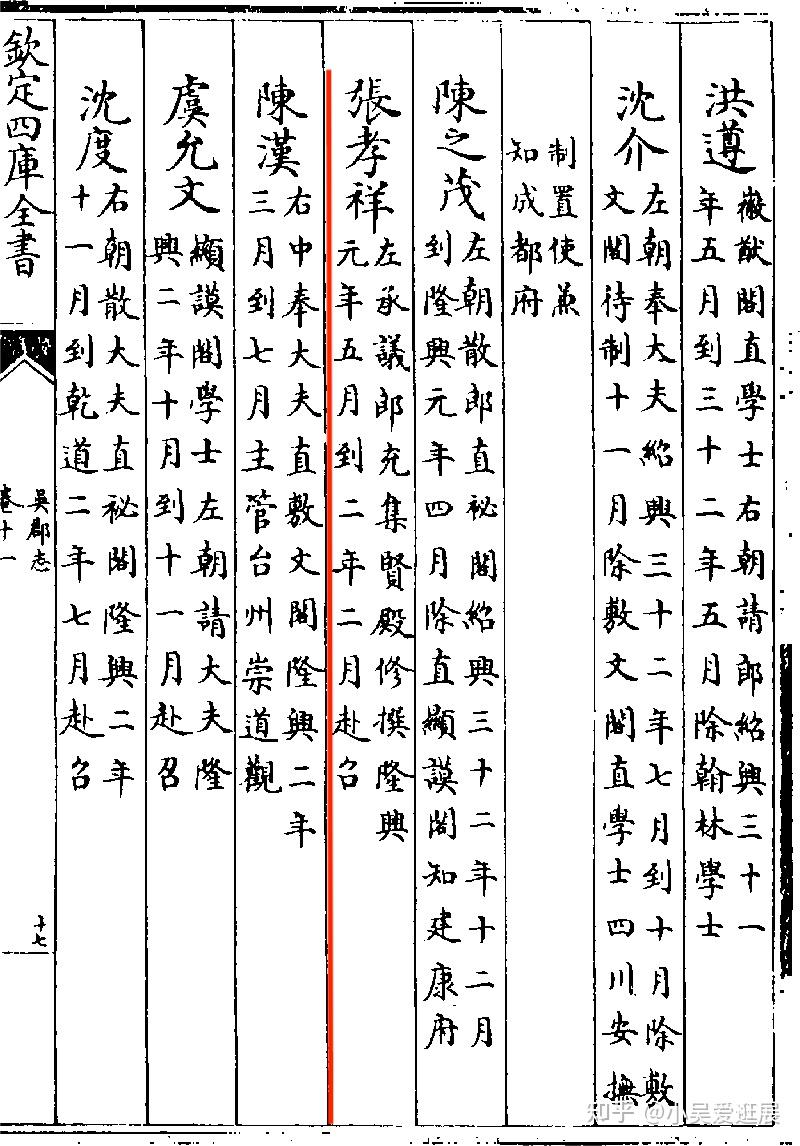 洪遵
徽猷閣直學士右朝請郎紹興三十一
年五月到三十二年五月除翰林學士
沈介
左朝奉大夫紹興三十二年七月到十月除敷
文閣待制十一月除敷文閣直學士四川安撫
制置使兼
知成都府
陳之茂
左朝散郎直祕閣紹興三十二年十二月
到隆興元年四月除直顯謨閣知建康府
張孝祥
左承議郎充集賢殿修撰隆興
元年五月到二年二月赴召
陳漢
右中奉大夫直敷文閣隆興二年
三月到七月主管台州崇道觀
虞允文
顯謨閣學士左朝請大夫隆
興二年十月到十一月赴召
沈度
右朝散大夫直祕閣隆興二年
十一月到乾道二年七月赴召
欽定四庫全書
吳郡志
卷十一
十七
知乎 @小吴爱逛展